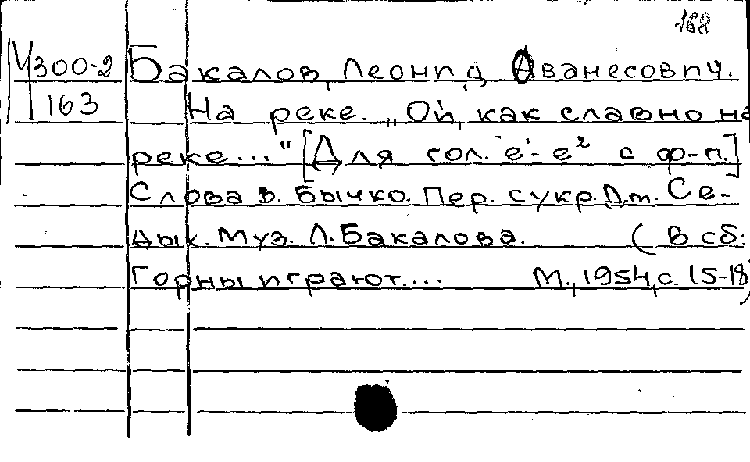 168
У300-2 Бакалов, Леонид Аванесович.
163 На реке. „Ой, как славно на
реке..." [Для гол. e¹-e² с ф-п.]
Слова В. Бычко. Пер. с укр. Дм. Се-
дык. Муз. Л. Бакалова. (В сб:
Горны играют.... М., 1954, с. 15-18)